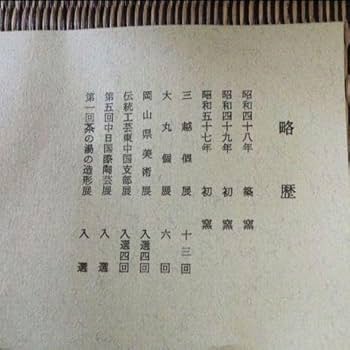 略歴
昭和四十八年 築窯
昭和四十九年 初窯
昭和五十七年 初窯
三越個展 十三回
大丸個展 六回
岡山県美術展 入選四回
伝統工芸東中国支部展 入選四回
第五回中日国際陶芸展 入選
第一回茶の湯の造形展 入選